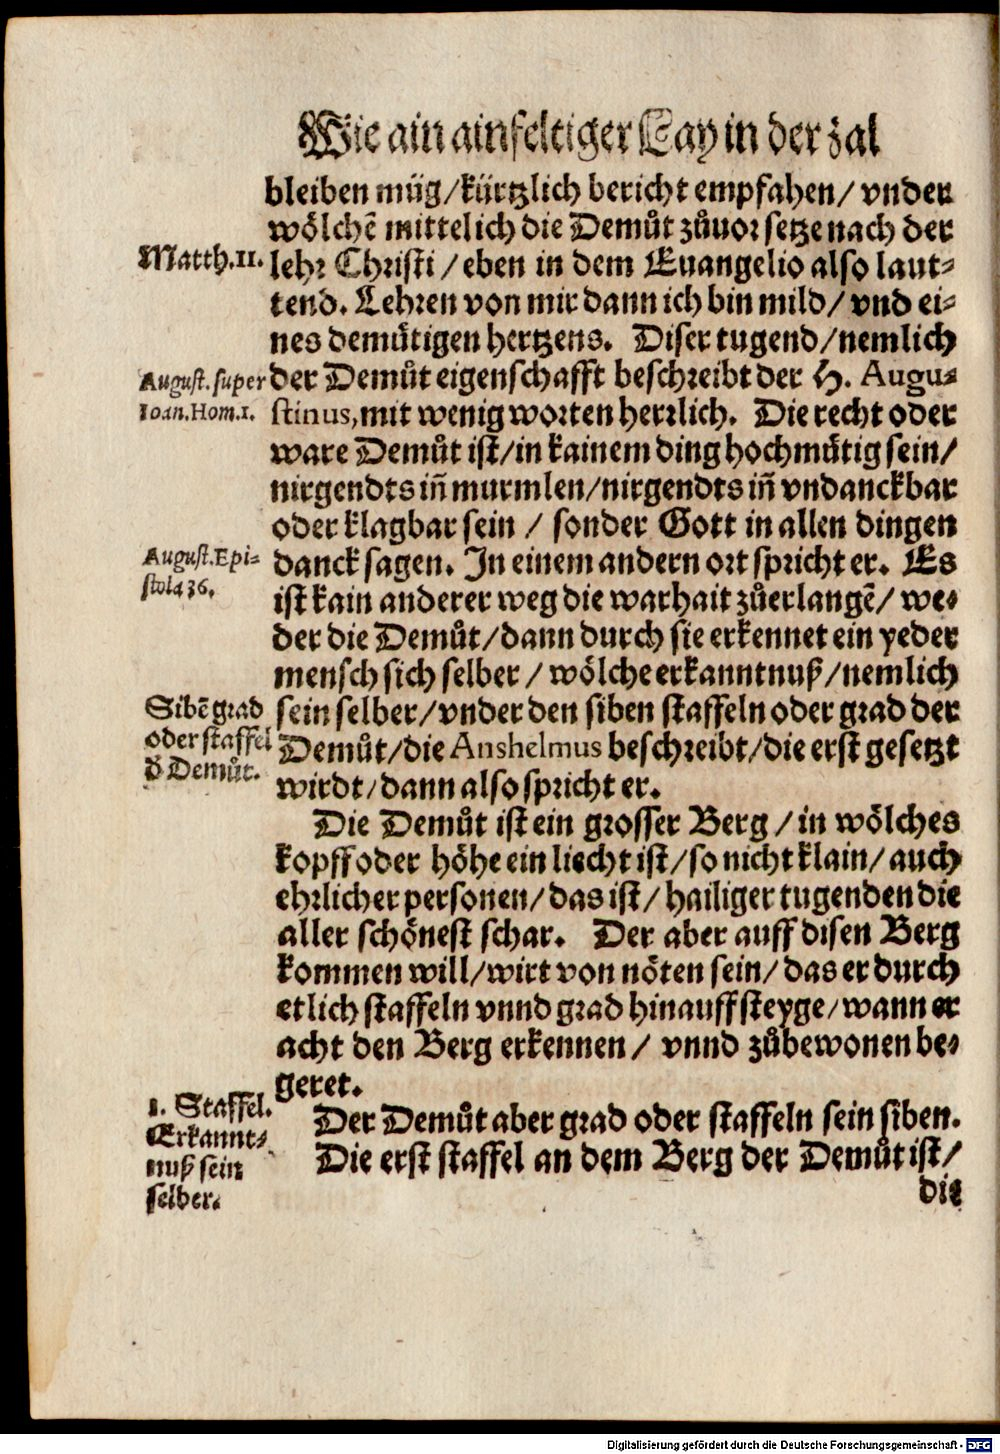 Wie ain ainfeltiger Lay in der zal
bleiben müg/kürtzlich bericht empfahen/ vnder
wölchē mittelich die Demůt zůuor setze nach der
Matth.11.
lehr Christi/eben in dem Euangelio also laut⸗
tend. Lehren von mir dann ich bin mild/ vnd ei⸗
nes demütigen hertzens. Diser tugend/nemlich
August. super
Ioan. Hom.1.
der Demůt eigenschafft beschreibt der H. Augu⸗
stinus, mit wenig worten herrlich. Die recht oder
ware Demůt ist/in kainem ding hochmütig sein/
nirgendts iñ murmlen/nirgendts iñ vndanckbar
oder klagbar sein / sonder Gott in allen dingen
August. Epi-
stola 36.
danck sagen. In einem andern ort spricht er. Es
ist kain anderer weg die warhait zůerlangē/ we⸗
der die Demůt/dann durch sie erkennet ein yeder
mensch sich selber / wölche erkanntnuß/nemlich
Sibē grad
oder staffel
d̄ Demůt.
sein selber/vnder den siben staffeln oder grad der
Demůt/die Anshelmus beschreibt/die erst gesetzt
wirdt/dann also spricht er.
Die Demůt ist ein grosser Berg / in wölches
kopff oder höhe ein liecht ist/so nicht klain/ auch
ehrlicher personen/das ist/ hailiger tugenden die
aller schönest schar. Der aber auff disen Berg
kommen will/wirt von nöten sein/ das er durch
etlich staffeln vnnd grad hinauff steyge/wann er
acht den Berg erkennen/ vnnd zůbewonen be⸗
geret.
1. Staffel.
Erkannt⸗
nuß sein
selber.
Der Demůt aber grad oder staffeln sein siben.
Die erst staffel an dem Berg der Demůt ist/
die
Digitalisierung gefördert durch die Deutsche Forschungsgemeinschaft - DFG